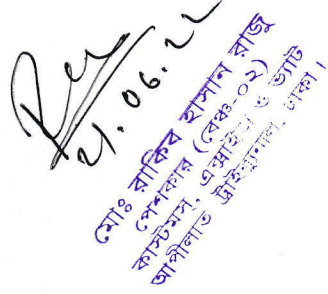 21.06.22
মোঃ রাকিব হাসান রাজু
পেশকার (বেঞ্চ-০২)
কাস্টমস, এক্সাইজ ও ভ্যাট
আপীলাত ট্রাইব্যুনাল, ঢাকা।